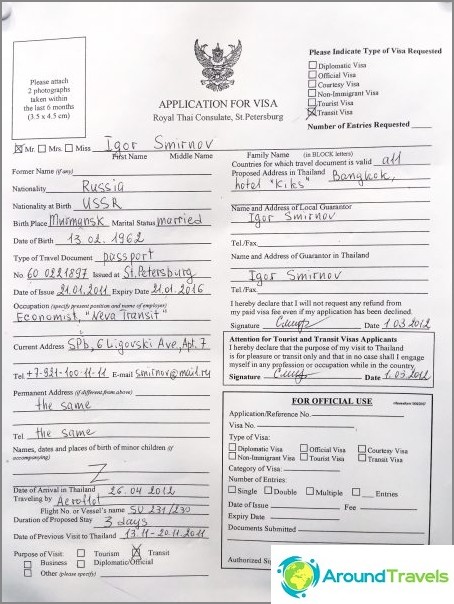 Please attach
2 photographs
taken within
the last 6 months
(3.5 x 4.5 cm)
APPLICATION FOR VISA
Royal Thai Consulate, St.Petersburg
Please Indicate Type of Visa Requested
Diplomatic Visa
Official Visa
Courtesy Visa
Non-Immigrant Visa
Tourist Visa
Transit Visa
Number of Entries Requested
Mr. Mrs. Miss Igor Smirnov
First Name Middle Name Family Name (in BLOCK letters)
Former Name (if any)
Nationality Russia
Nationality at Birth USSR
Birth Place Murmansk Marital Status married
Date of Birth 13.02.1962
Type of Travel Document passport
No. 60 0221897 Issued at St.Petersburg
Date of Issue 21.01.2011 Expiry Date 21.01.2016
Occupation (specify present position and name of employer)
Economist, "Neva Transit"
Current Address SPb, 6 Ligovski Ave, Apt. 7
Tel +7-921-100-11-11 E-mail smirnov@mail.ru
Permanent Address (if different from above)
the same
Tel the same
Names, dates and places of birth of minor children (if
accompanying)
Z
Date of Arrival in Thailand 26.04 2012
Traveling by Aeroflot
Flight No. or Vessel's name SU 231/230
Duration of Proposed Stay 3 days
Date of Previous Visit to Thailand 13.11-20.11.2011
Purpose of Visit: Tourism Transit
Business Diplomatic/Official
Other (please specify)
Countries for which travel document is valid all
Proposed Address in Thailand Bangkok,
hotel "Kiks"
Name and Address of Local Guarantor
Igor Smirnov
Tel./Fax
Name and Address of Guarantor in Thailand
Igor Smirnov
Tel./Fax
I hereby declare that I will not request any refund from
my paid visa fee even if my application has been declined.
Signature Date 1 03 2012
Attention for Tourist and Transit Visas Applicants
I hereby declare that the purpose of my visit to Thailand
is for pleasure or transit only and that in no case shall I engage
myself in any profession or occupation while in the country.
Signature Date 1.03 2012
FOR OFFICIAL USE
Application/Reference No.
Visa No.
Type of Visa:
Diplomatic Visa Official Visa Courtesy Visa
Non-Immigrant Visa Tourist Visa Transit Visa
Category of Visa:
Number of Entries:
Single Double Multiple Entries
Date of Issue Fee
Expiry Date
Documents Submitted
Authorized
AroundTravels